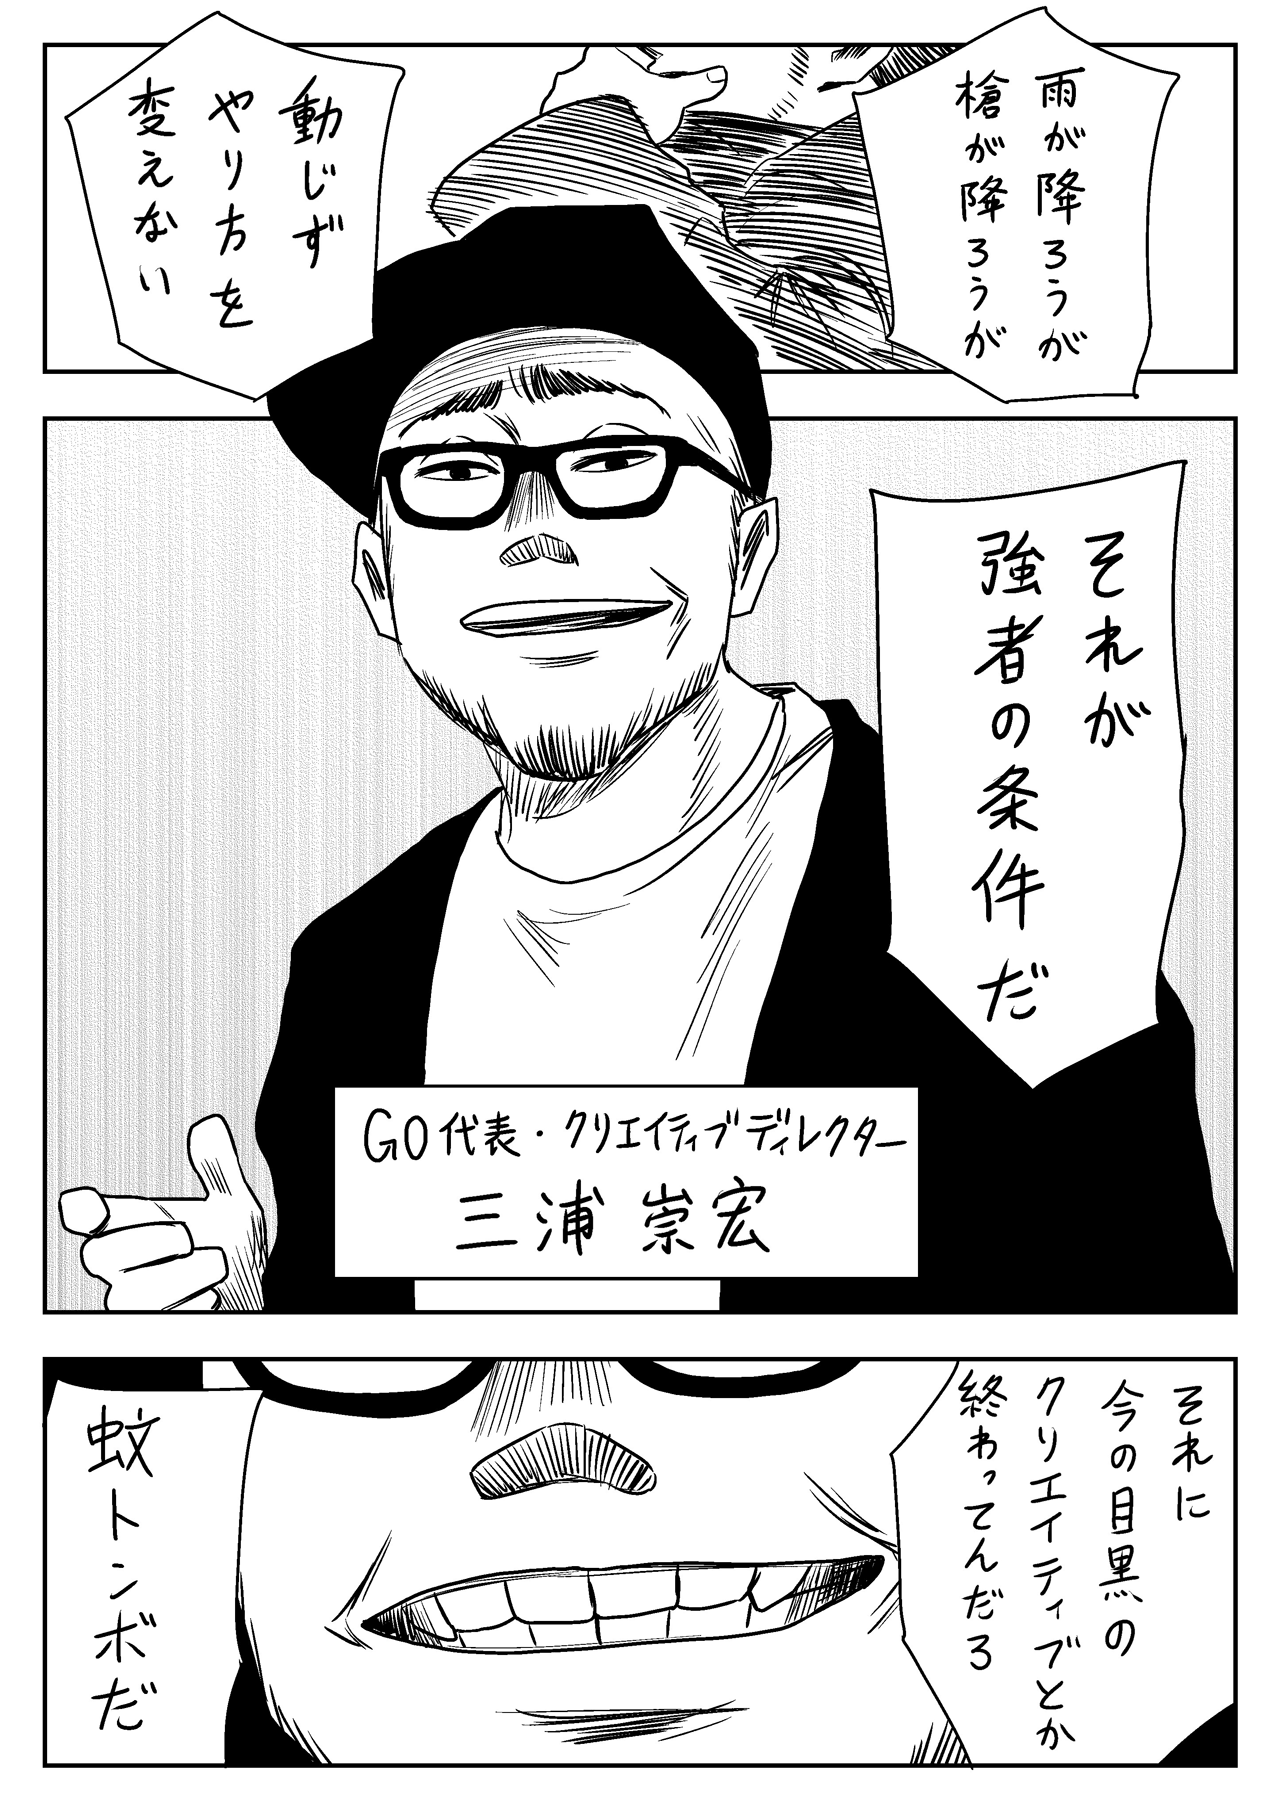 雨が降ろうが
槍が降ろうが
動じず
やり方を
変えない
それが
強者の条件だ
GO代表・クリエイティブディレクター
三浦 崇宏
それに
今の目黒の
クリエイティブとか
終わってんだろ
蚊トンボだ